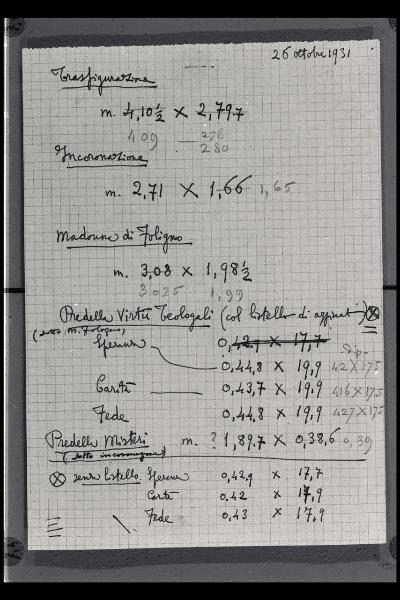 26 ottobre 1931
Trasfigurazione
m. 4,10½ × 2,79.7
409 — 278
280
Incoronazione
m. 2,71 × 1,66 1,65
Madonna di Foligno
m. 3,08 × 1,98½
3.025 1,99
Predella Virtù Teologali (col listello di aggiunta) ⊗
(sotto M. Foligno)
Speranza 0,42.9 × 17,7
0,44,8 × 19,9 42 × 175
Carità — 0,43,7 × 19,9 416 × 175
Fede 0,44,8 × 19,9 427 × 175
Predella Misteri m. ? 1,89.7 × 0,38,6 0,39
(sotto incoronazione)
⊗ senza listello Speranza 0,42,9 × 17,7
Carità 0,42 × 17,9
Fede 0,43 × 17,9